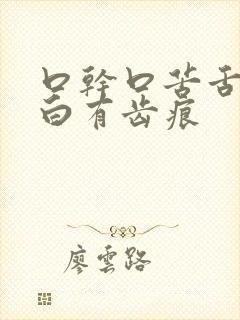 口幹口苦舌
白有齿痕
廖雲路